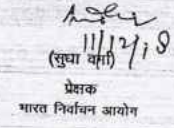 11/12/18
(सुधा वर्मा)
प्रेक्षक
भारत निर्वाचन आयोग